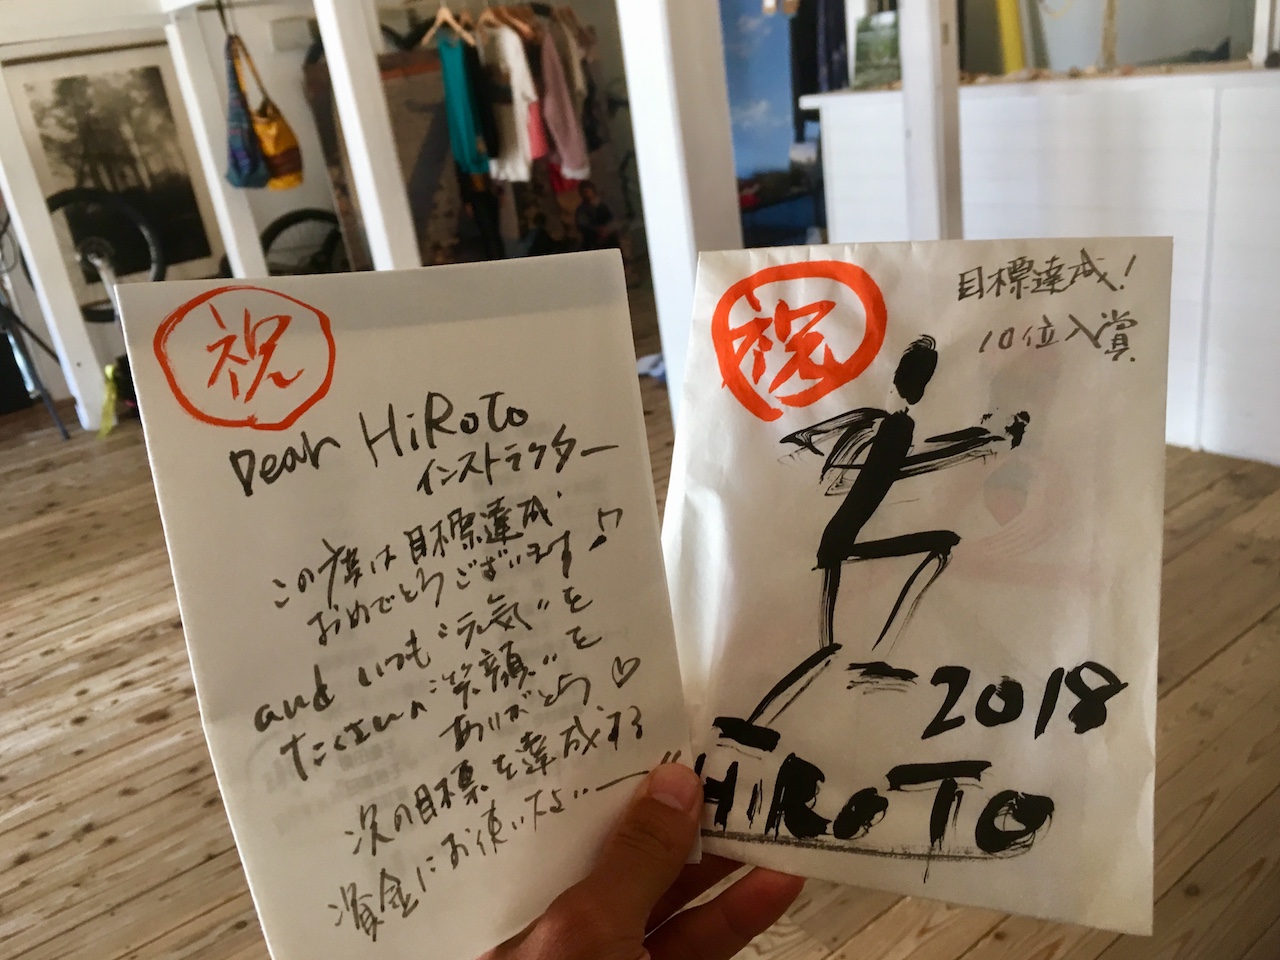 祝
Dear HiRoTo
インストラクター
この度は目標達成
おめでとうございます♪
and いつも“元気”を
たくさんの“笑顔”を
ありがとう♡
次の目標を達成する
資金にお使い下さい
祝
目標達成!
10位入賞
2018
HiRoTo